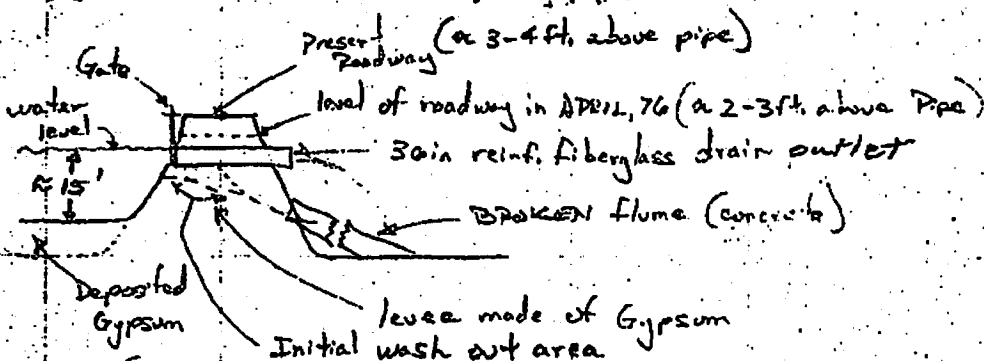 Present (≈ 3-4 ft. above pipe)
Roadway
Gate
water level
level of roadway in APRIL, 76 (≈ 2-3 ft. above Pipe)
30in reinf. fiberglass drain outlet
≈ 15'
BROKEN flume (concrete)
Deposited
Gypsum
levee made of Gypsum
Initial wash out area